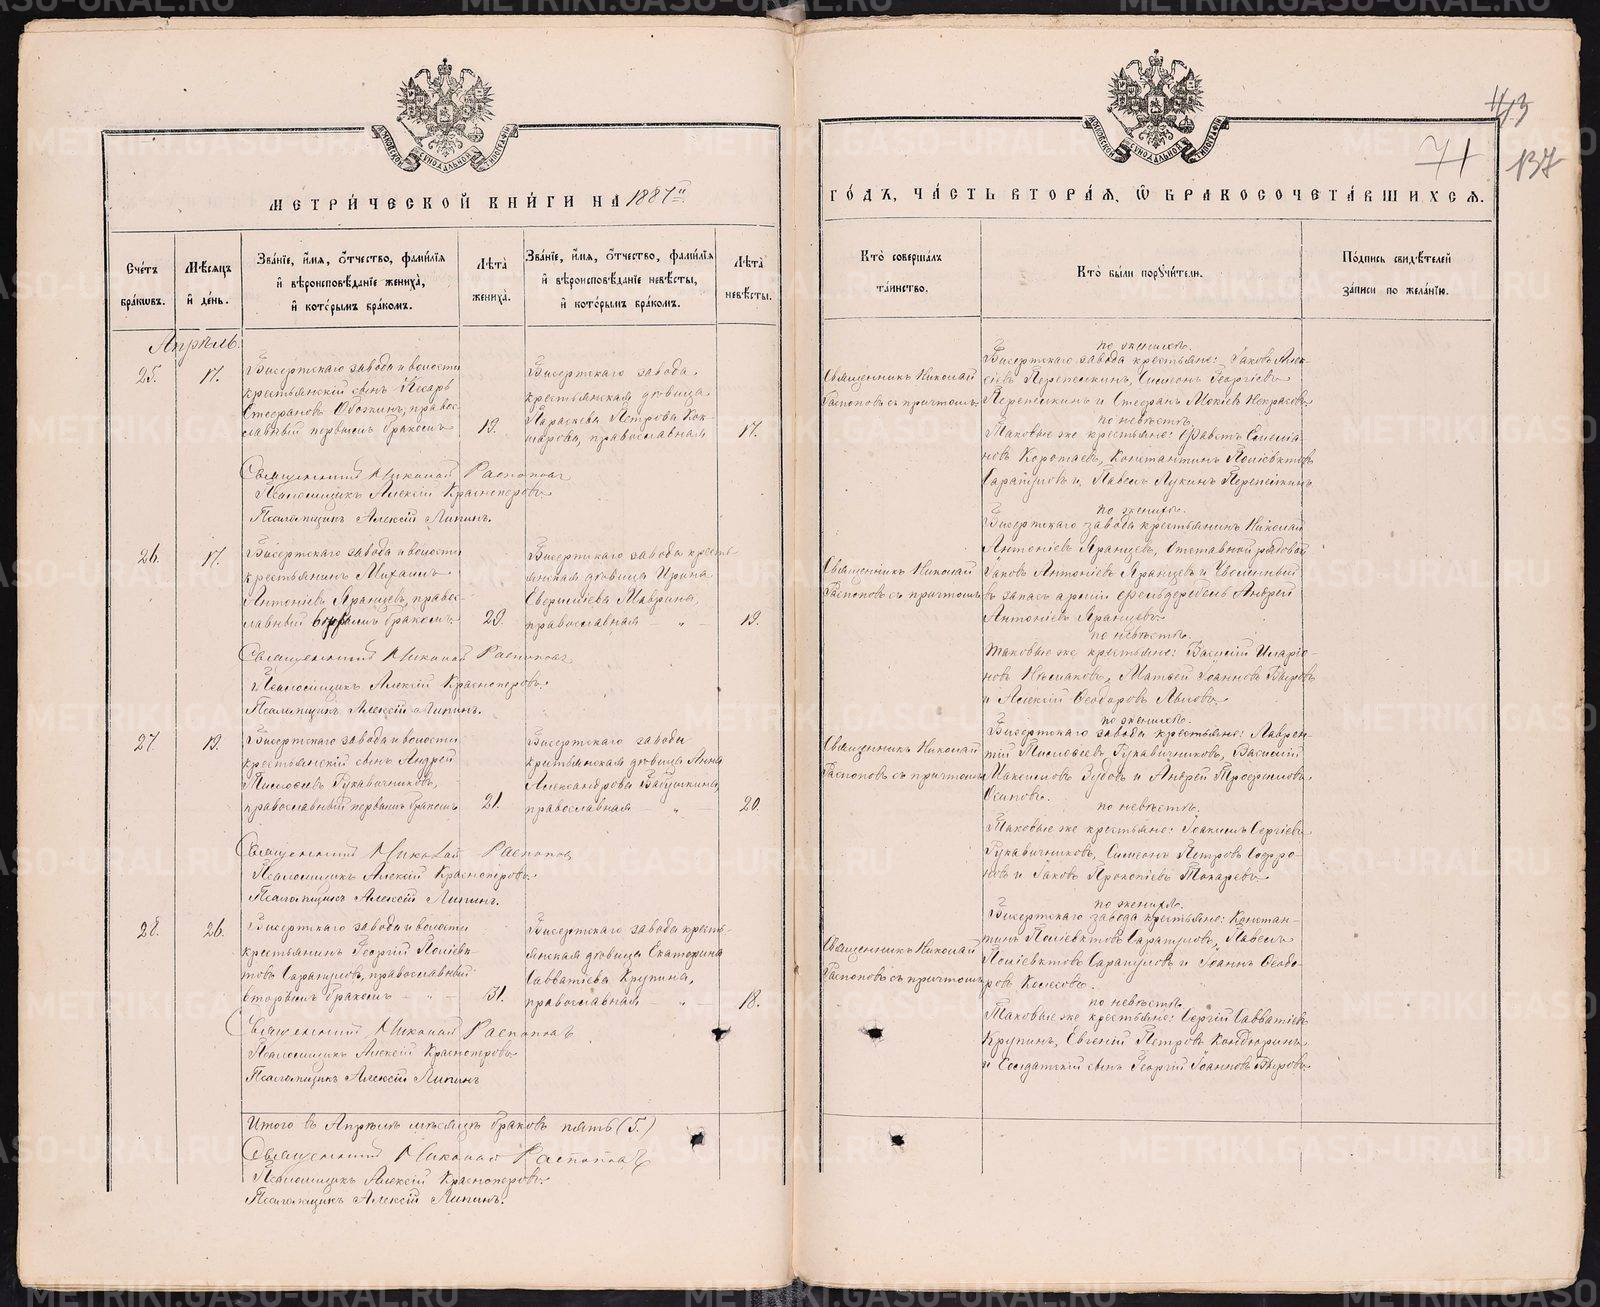 МЕТРИ́ЧЕСКОЙ КНИ́ГИ НА 1887й
ГО́ДЪ, ЧА́СТЬ ВТОРА́Я, Ѡ БРАКОСОЧЕТА́ВШИХСЯ.
113
71 137
Сче́тъ бра́ковъ.
Мѣ́сяцъ и де́нь.
Зва́нїе, и́мя, о́тчество, фами́лїя и҆ вѣроисповѣ́данїе жениха̀, и҆ кото́рымъ бра́комъ.
Лѣта̀ жениха̀.
Зва́нїе, и́мя, о́тчество, фами́лїя и҆ вѣроисповѣ́данїе невѣ́сты, и҆ кото́рымъ бра́комъ.
Лѣта̀ невѣ́сты.
Кто̀ соверша́лъ та́инство.
Кто̀ бы́ли пору́чи́тели.
По́дпись свидѣ́телей за́писи по жела́нїю.
Апрѣль.
25.
17.
Висертскаго завода и волости
крестьянскій сынъ
Стефановъ правос-
лавный первымъ бракомъ
19.
Висертскаго завода
крестьянская дѣвица
Параскева Петрова Кок-
шарова, православная
17.
Священникъ Николай
Распоповъ съ причтомъ
по женихѣ.
Висертскаго завода крестьяне: Іаковъ Алек-
сіевъ Перепелкинъ, Симеонъ Георгіевъ
Перепелкинъ и Стефанъ Мокіевъ Некрасовъ
по невѣстѣ.
Таковые же крестьяне:
Коротаевъ, Константинъ Поліевктовъ
Сарапуловъ и Павелъ Лукинъ Перепелкинъ
Священникъ Николай Распоповъ
Псаломщикъ Алексій Красноперовъ
Псаломщикъ Алексій Липинъ.
26.
17.
Висертскаго завода и волости
крестьянинъ Михаилъ
Антоніевъ Яранцевъ, правос-
лавный вторымъ бракомъ
29.
Висертскаго завода кресть-
янская дѣвица Ирина
Маврина,
православная — „ —
19.
Священникъ Николай
Распоповъ съ причтомъ
по женихѣ.
Висертскаго завода крестьянинъ Николай
Антоніевъ Яранцевъ, Отставной рядовой
Іаковъ Антоніевъ Яранцевъ и Уволенный
въ запасъ арміи фельдфебель Андрей
Антоніевъ Яранцевъ
по невѣстѣ.
Таковые же крестьяне: Василій Иларіо-
новъ Матвей Іоанновъ Быковъ
и Алексій Ѳеодоровъ
Священникъ Николай Распоповъ
Псаломщикъ Алексій Красноперовъ.
Псаломщикъ Алексій Липинъ.
27.
19.
Висертскаго завода и волости
крестьянскій сынъ Андрей
Рукавичниковъ,
православный первымъ бракомъ
21.
Висертскаго завода
крестьянская дѣвица Анна
Александрова Бабушкина,
православная — „ —
20.
Священникъ Николай
Распоповъ съ причтомъ
по женихѣ.
Висертскаго завода крестьяне: Лаврен-
тій Рукавичниковъ, Василій
Максимовъ Зубовъ и Андрей Трофимовъ
Осиповъ.
по невѣстѣ.
Таковые же крестьяне: Іоакимъ Сергіевъ
Рукавичниковъ, Симеонъ Петровъ Софро-
новъ и Іаковъ Прокопіевъ Токаревъ
Священникъ Николай Распоповъ
Псаломщикъ Алексій Красноперовъ.
Псаломщикъ Алексій Липинъ.
28.
26.
Висертскаго завода и волости
крестьянинъ Георгій Поліевк-
товъ Сарапуловъ, православный
вторымъ бракомъ — „ —
31.
Висертскаго завода кресть-
янская дѣвица Екатерина
Савватіева Крупина,
православная — „ —
18.
Священникъ Николай
Распоповъ съ причтомъ
по женихѣ.
Висертскаго завода крестьяне: Констан-
тинъ Поліевктовъ Сарапуловъ, Павелъ
Поліевктовъ Сарапуловъ и Іоаннъ Ѳеодо-
ровъ Колесовъ.
по невѣстѣ.
Таковые же крестьяне: Сергій Савватіевъ
Крупинъ, Евгеній Петровъ Кондюринъ
и Солдатскій сынъ Георгій Іоанновъ Быковъ
Священникъ Николай Распоповъ
Псаломщикъ Алексій Красноперовъ
Псаломщикъ Алексій Липинъ
Итого въ Апрѣлѣ мѣсяцѣ браковъ пять (5.)
Священникъ Николай Распоповъ
Псаломщикъ Алексій Красноперовъ.
Псаломщикъ Алексій Липинъ.
METRIKI.GASO-URAL.RU